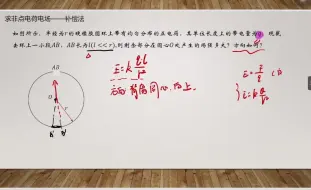 求非点电荷电场——补偿法
如图所示，半径为r的硬橡胶圆环上带有均匀分布的正电荷，其单位长度上的带电量为q，现截
去环上一小段AB，AB长为l(l<<r)，则剩余部分在圆心O处产生的场强多大？方向如何？
E=k ql/r²
E=F/q
方向背离圆心，向上
E=k Q/r²
AB
O
r
A' B'